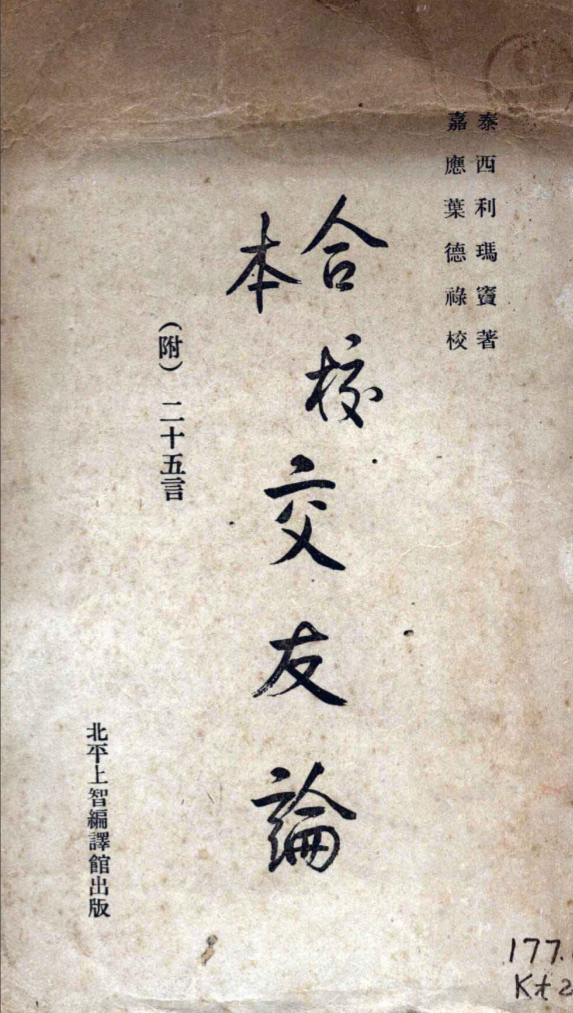 泰西利瑪竇著
嘉應葉德祿校
合校本
交友論
（附）二十五言
北平上智編譯館出版
177.